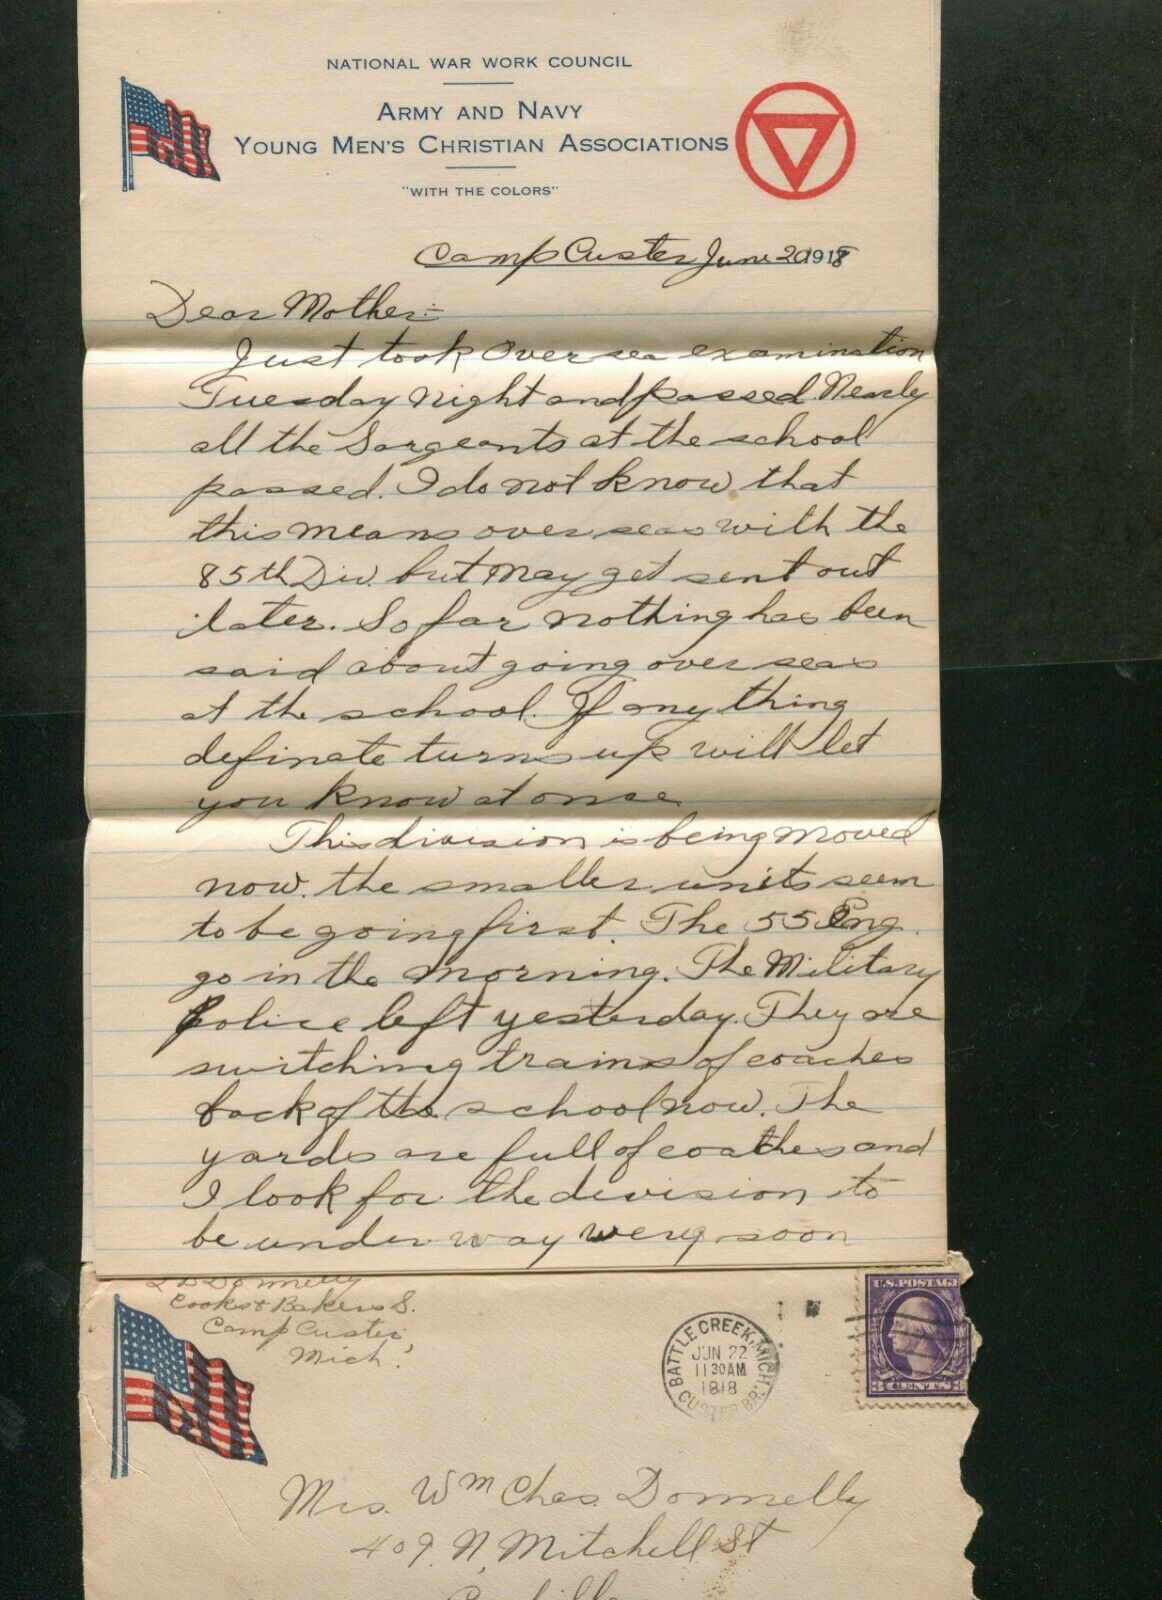 NATIONAL WAR WORK COUNCIL
ARMY AND NAVY
YOUNG MEN'S CHRISTIAN ASSOCIATIONS
"WITH THE COLORS"
Camp Custer June 20 1918
Dear Mother:-
Just took Over sea examination
Tuesday night and passed. Nearly
all the Sargeants at the school
passed. I do not know that
this means over seas with the
85th Div. but may get sent out
later. So far nothing has been
said about going over seas
at the school. If any thing
definate turns up will let
you know at once.
This division is being moved
now. the smaller units seem
to be going first. The 55 Eng.
go in the morning. The Military
Police left yesterday. They are
switching trains of coaches
back of the school now. The
yards are full of coaches and
I look for the division to
be under way very soon
Donnelly
Cooks & Bakers S.
Camp Custer
Mich.
BATTLE CREEK, MICH.
JUN 22
11 30 AM
1918
CUSTER BR.
U.S. POSTAGE
3 CENTS 3
Mrs. Wm Chas. Donnelly
409. N. Mitchell St